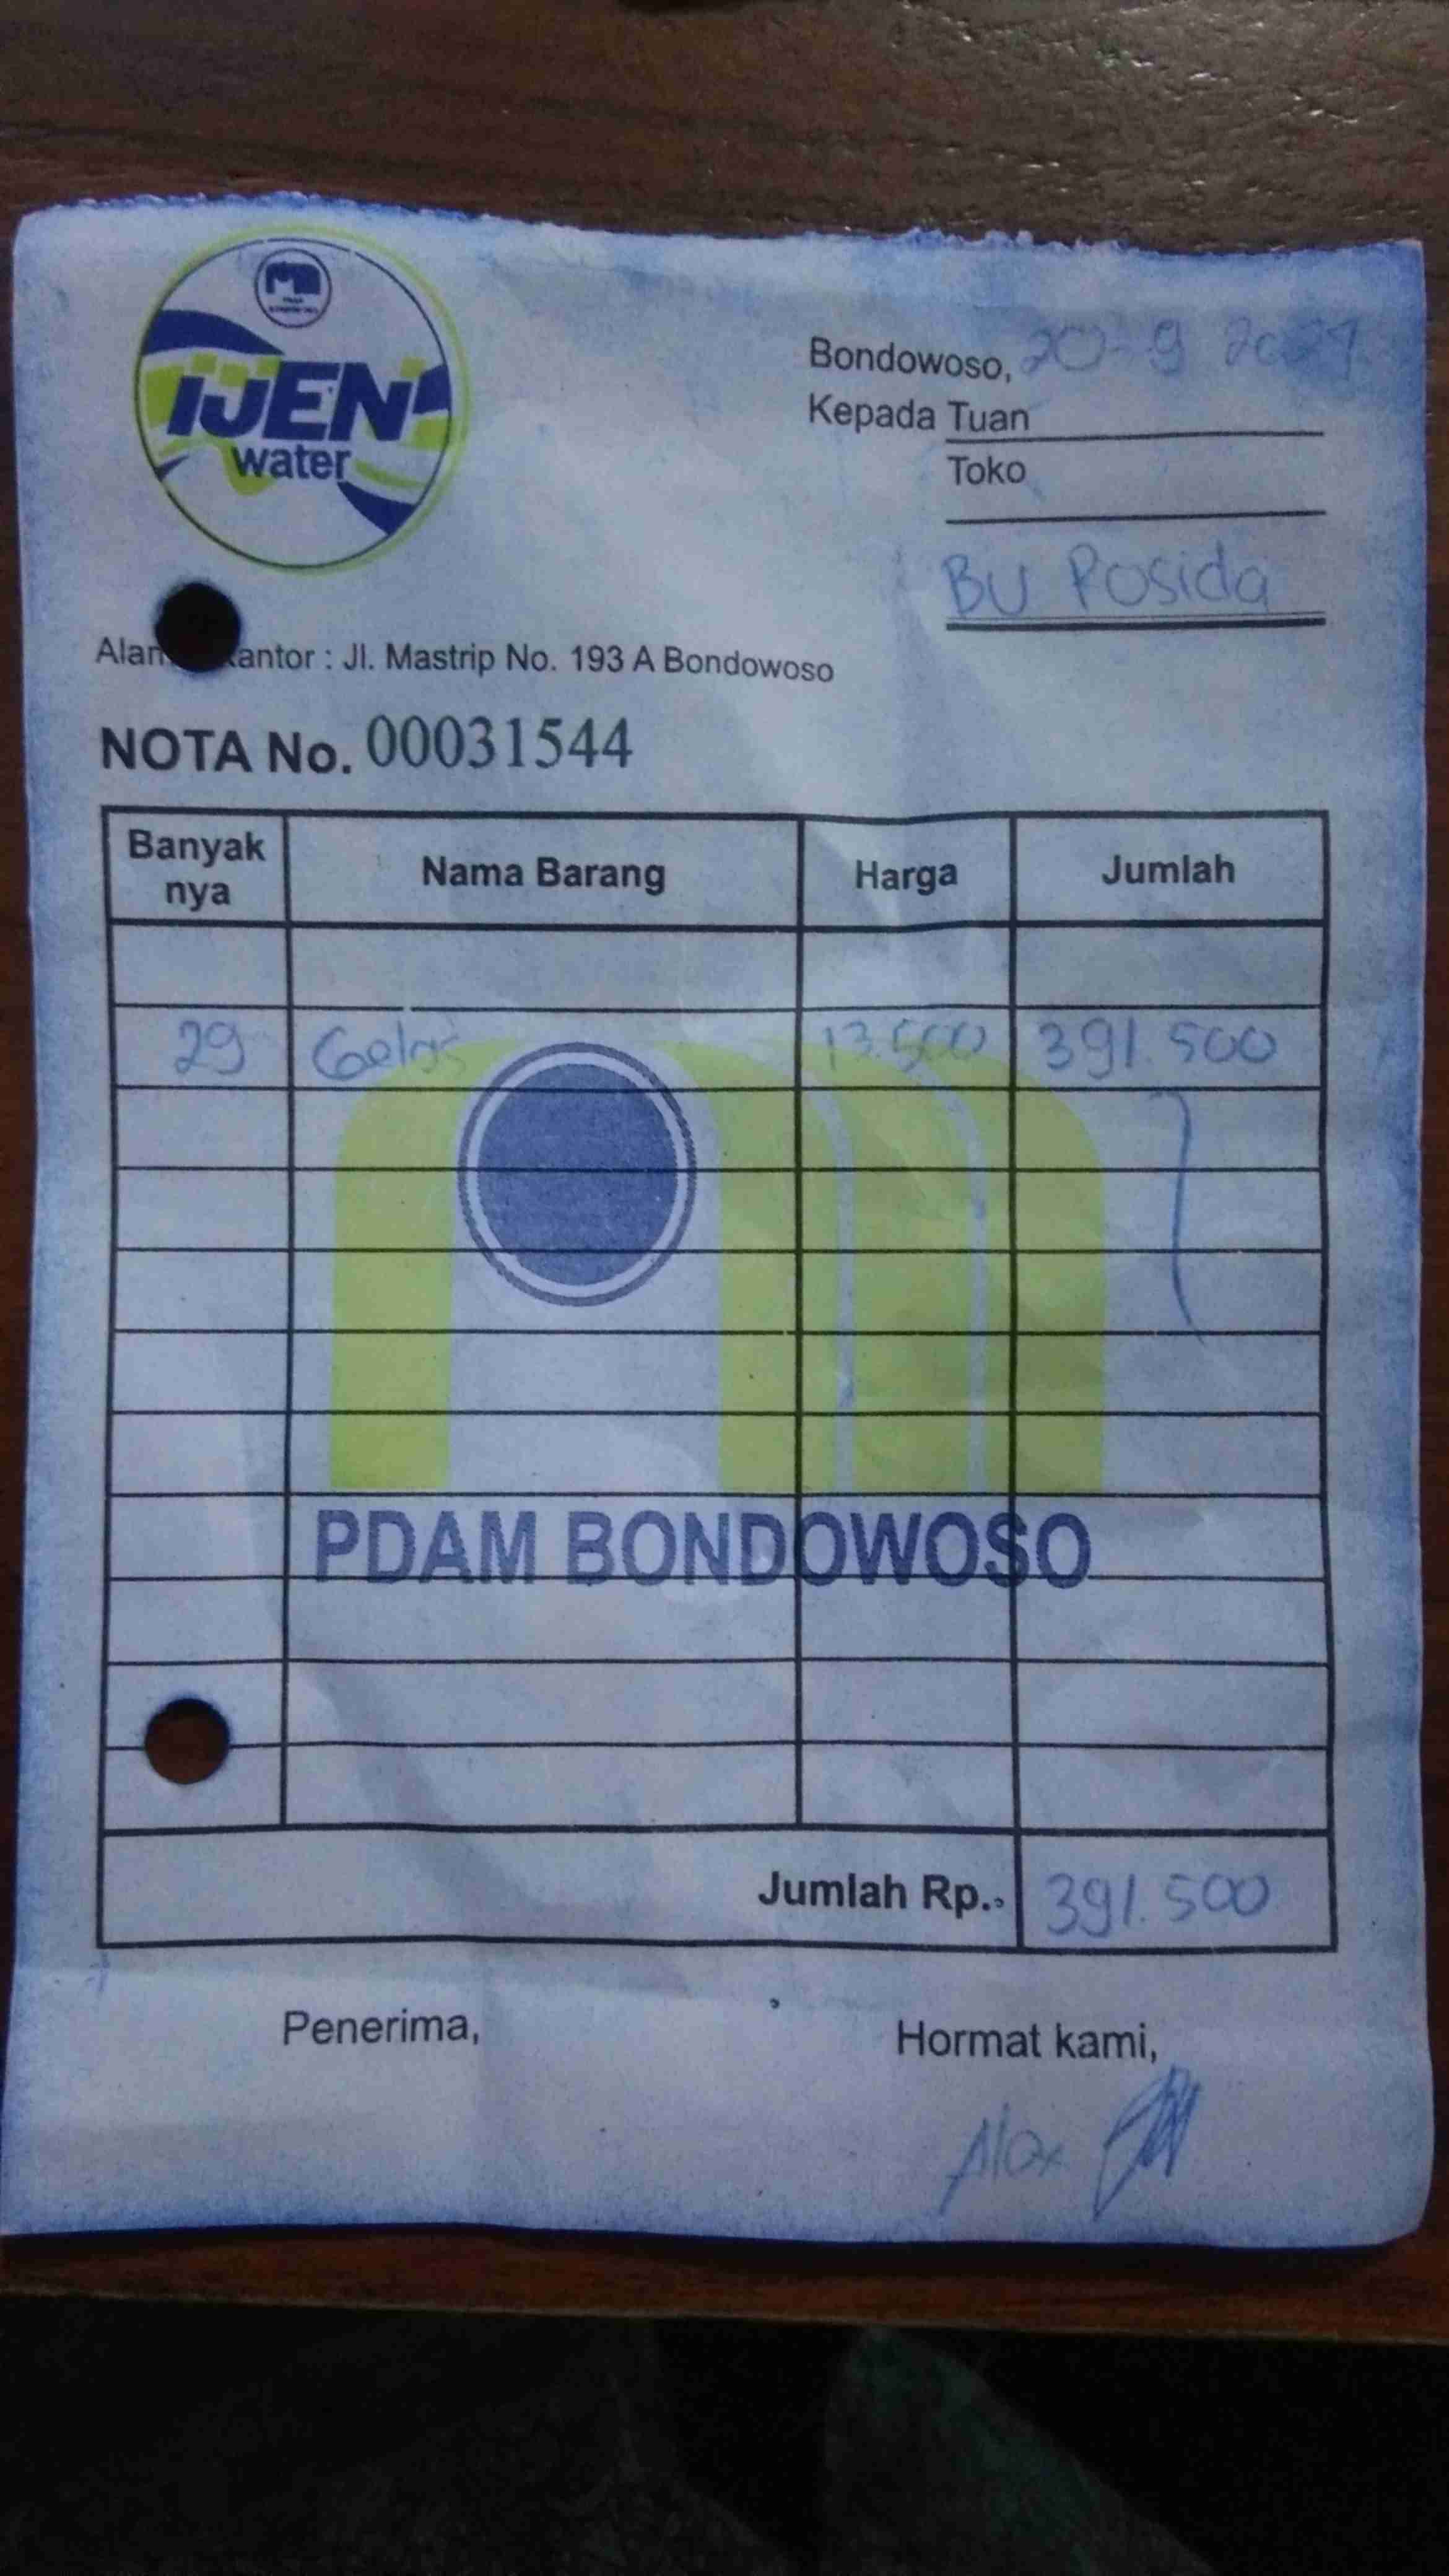 IJEN
water
Bondowoso, 20-9
Kepada Tuan
Toko
BU Rosida
Kantor : Jl. Mastrip No. 193 A Bondowoso
NOTA No. 00031544
Banyak nya Nama Barang Harga Jumlah
29 Gelas 13.500 391.500
PDAM BONDOWOSO
Jumlah Rp. 391.500
Penerima, Hormat kami,
Alox